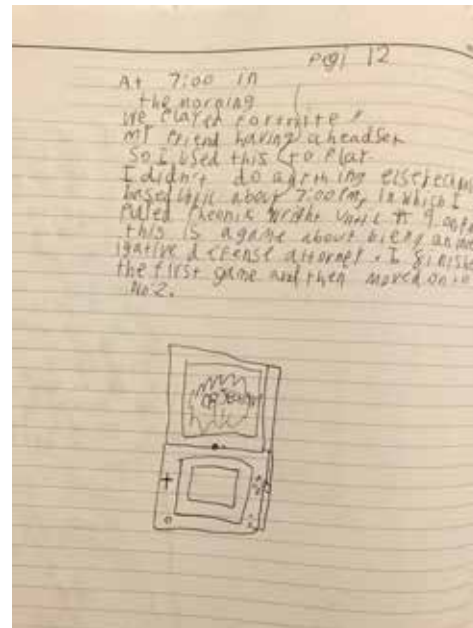 pagi 12
At 7:00 in
the morning
we Played Fortnite
MY Friend having a headset
So I used this to Play.
I didn't do anything else techno
based until about 7:00 Pm, in which I
Wright until 9
this is a game about being an
igative defense attorney. I finished
the first game and then moved on to
No 2.
OBJECTION